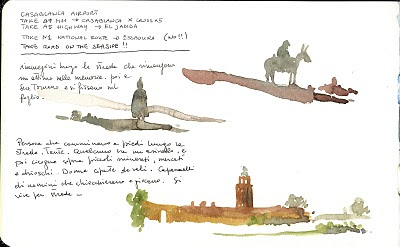 CASABLANCA AIRPORT
TAKE A7 HWY → CASABLANCA
TAKE A5 HIGHWAY → EL JADIDA
TAKE N1 NATIONAL ROUTE → ESSAOUIRA (NO!!)
TAKE ROAD ON THE SEASIDE!!
immagini lungo le strade che rimangono
un attimo nella memoria. poi e
si fissano sul
foglio.
Persone che camminano a piedi lungo la
strada. Tante. Qualcuno ha un asinello. e
poi ciccogne sopra piccoli minareti, mercati
e chioschi. Donne coperte da veli. Capannelli
di uomini che chiacchierano e giocano. Si
vive per strada.